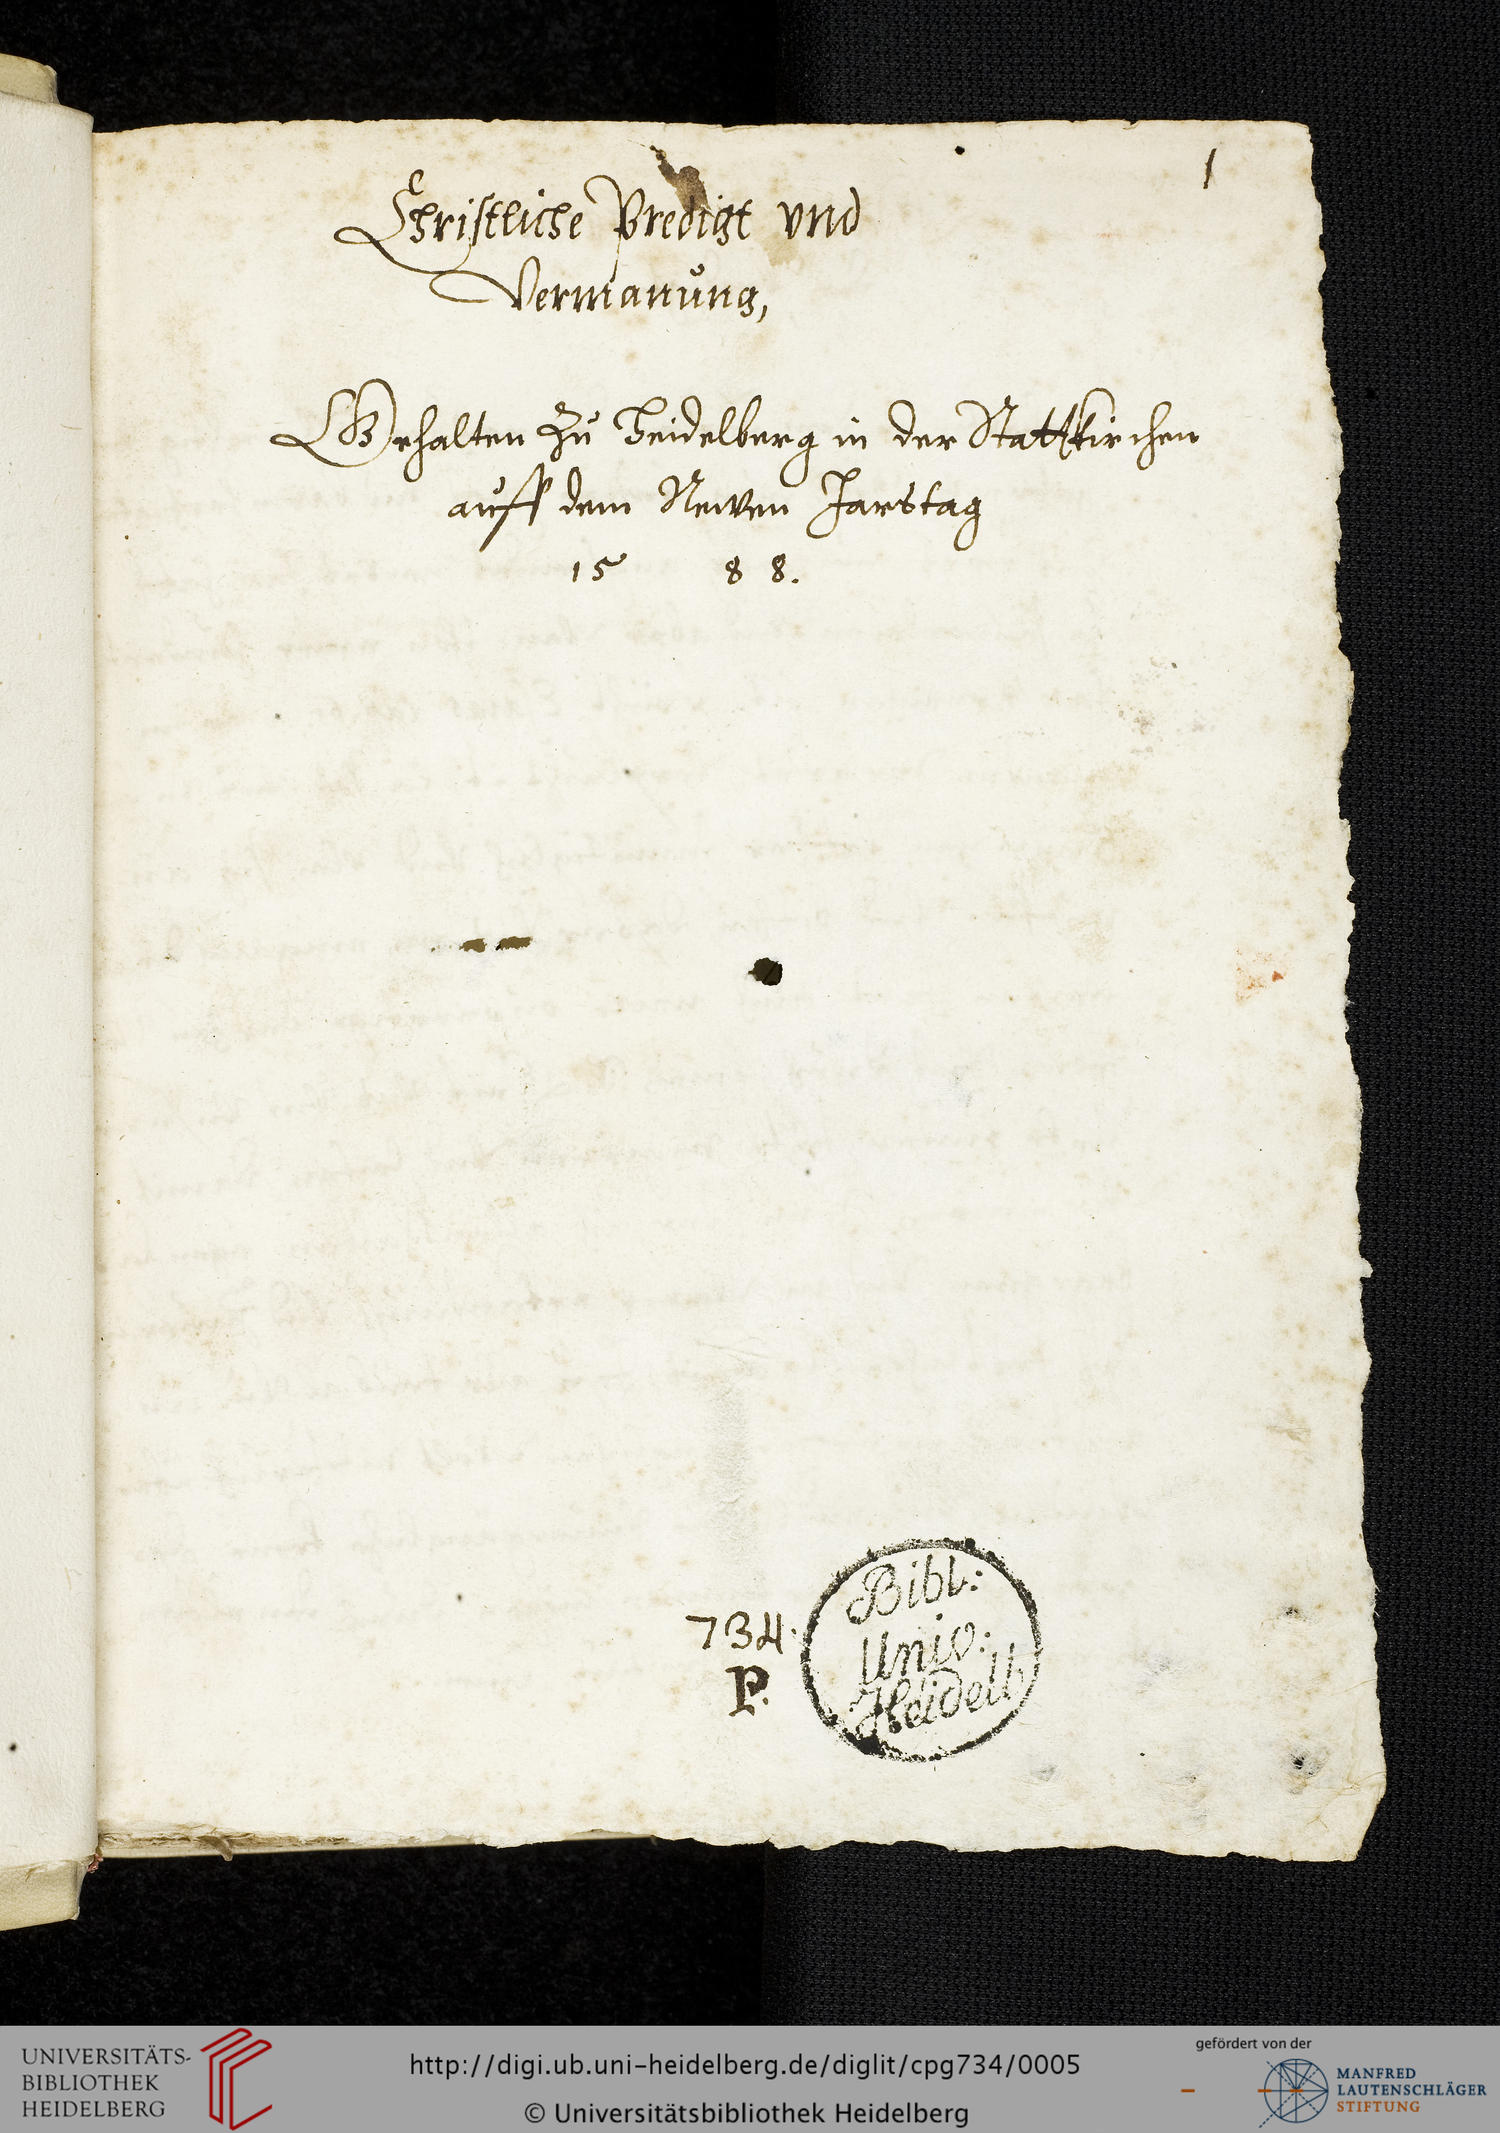 1
Christliche Predigt vnd
Vermanŭng,
Gehalten Zŭ Heidelberg in der Stattkirchen
aŭff dem Newen Jarstag
15 88.
734.
P.
Bibl:
Univ:
Heidelb
UNIVERSITÄTS-
BIBLIOTHEK
HEIDELBERG
http://digi.ub.uni-heidelberg.de/diglit/cpg734/0005
© Universitätsbibliothek Heidelberg
gefördert von der
MANFRED
LAUTENSCHLÄGER
STIFTUNG